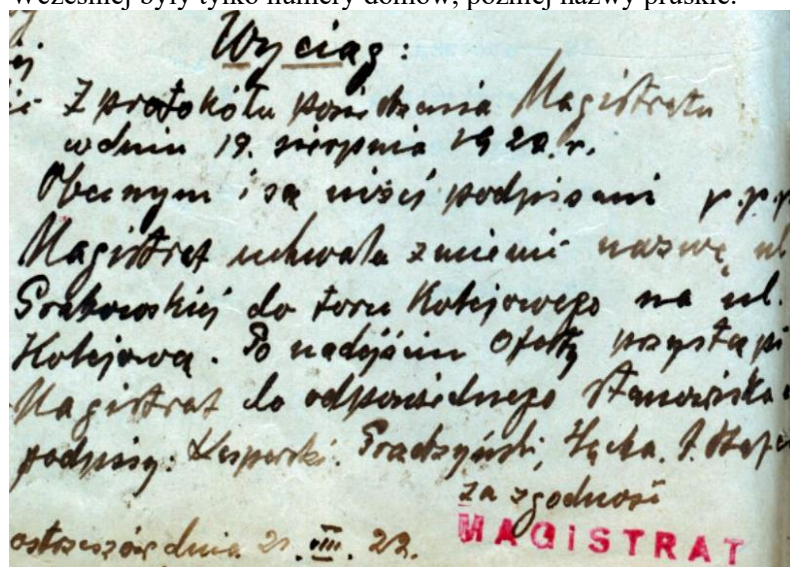 Wcześniej były tylko numery domów, później nazwy pruskie.
Wyciąg:
Z protokółu posiedzenia Magistratu
w dniu 19. sierpnia 1922. r.
Obecnym i są niżej podpisani p.p.p
Magistrat uchwala zmienić nazwę ul
do toru Kolejowego na ul.
Kolejową. Po nadejściu Oferty przystąpi
Magistrat do odpowiedniego Stanowiska
podpisy: Kasperski. Prądzyński,
za zgodność
Ostrzeszów dnia 21. VIII. 22.
MAGISTRAT